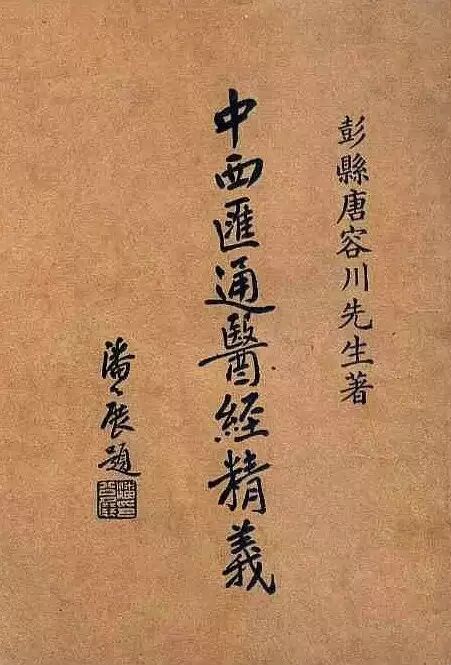 彭縣唐容川先生著
中西匯通醫經精義
潘公展題